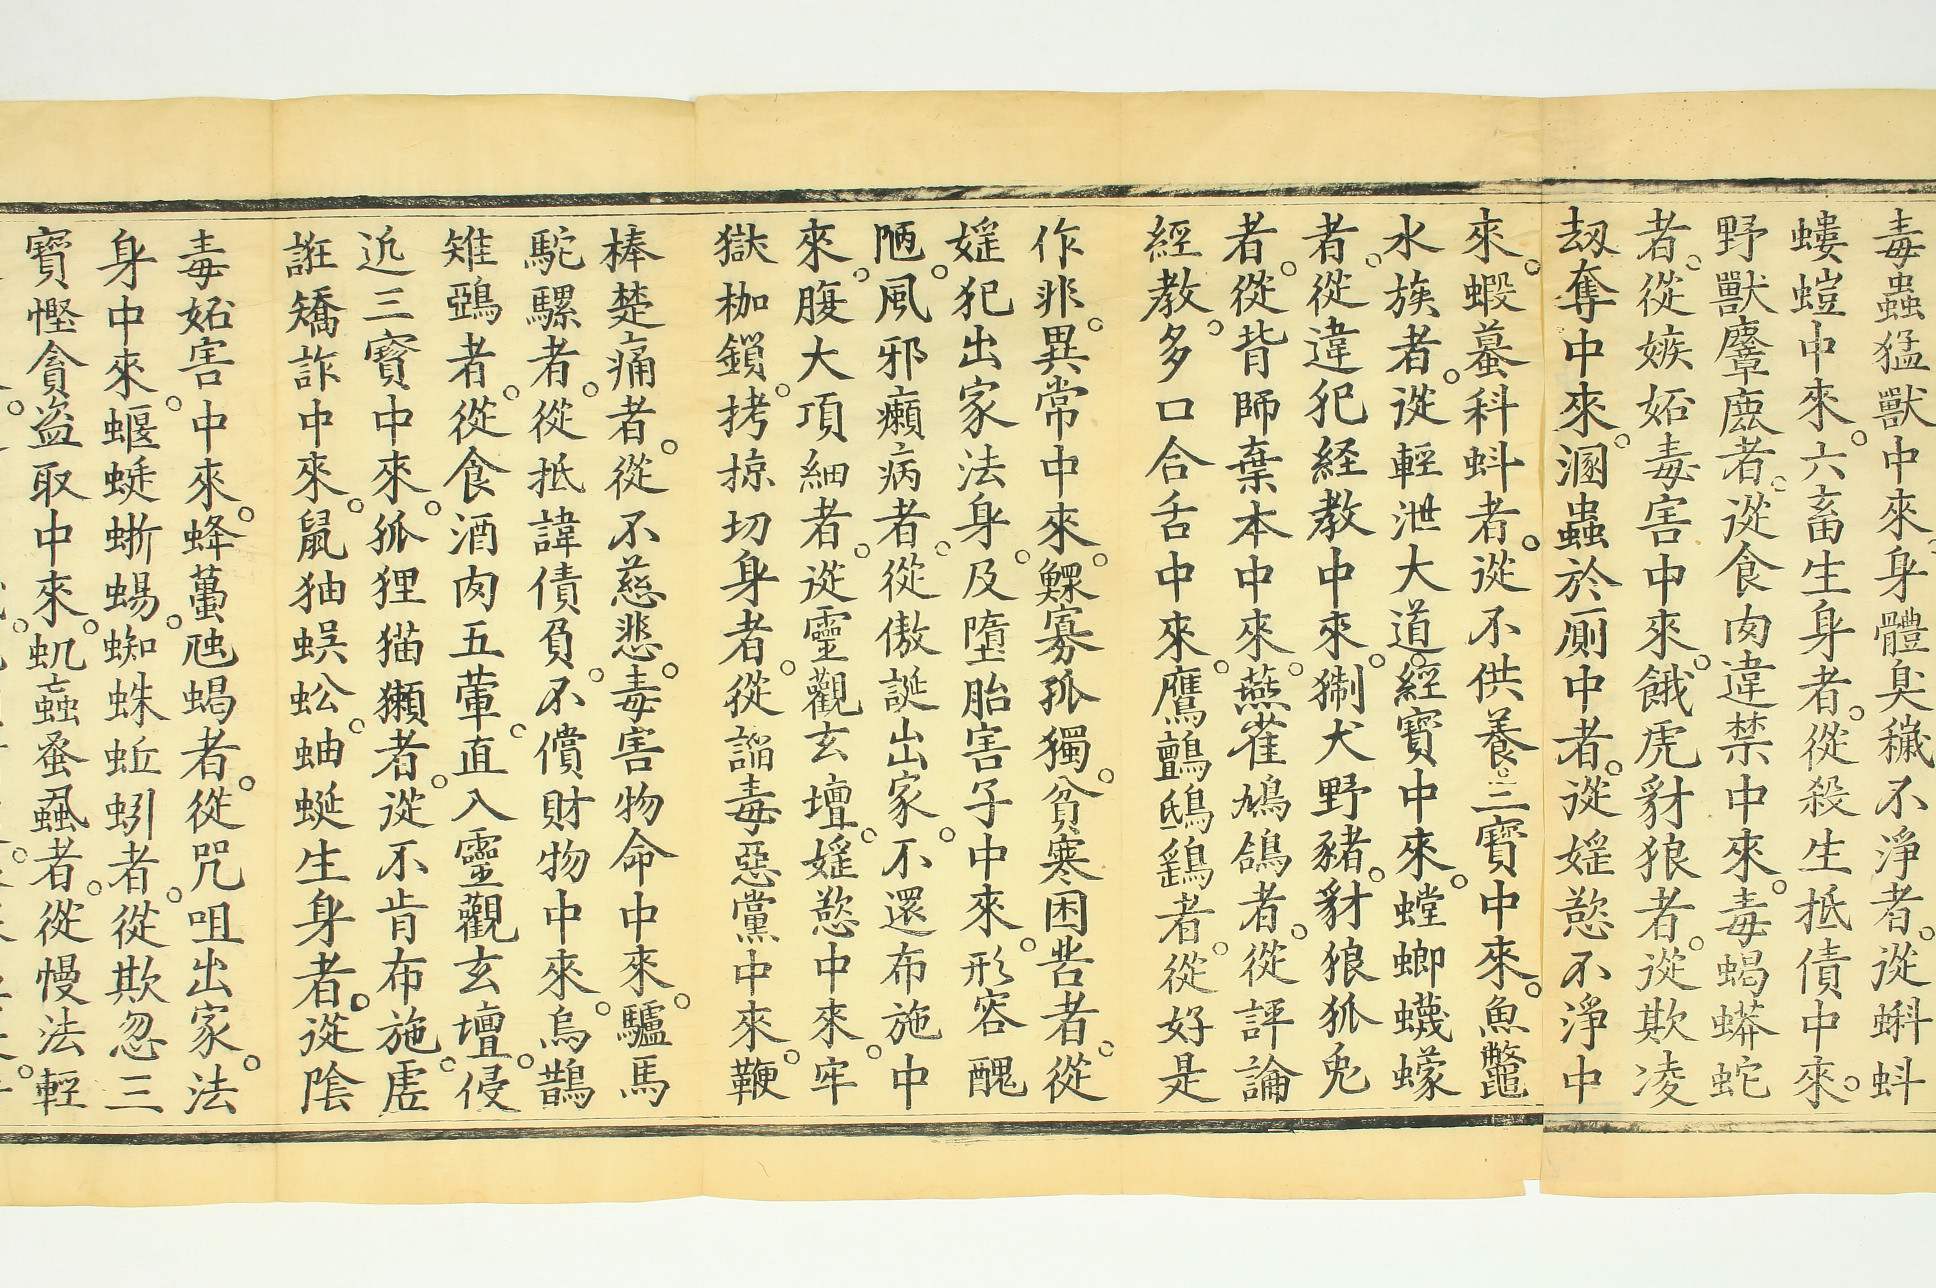 毒蟲猛獸中來身體臭穢不淨者。從蝌蚪
螻螘中來。六畜生身者。從殺生抵債中來。
野獸麞鹿者。從食肉違禁中來。毒蝎蟒蛇
者。從嫉妬毒害中來。餓虎豺狼者。從欺凌
刼奪中來。溷蟲於厠中者。從婬慾不淨中
來。蝦蟇科蚪者。從不供養。三寶中來。魚鼈
水族者。從輕泄大道。經寶中來。螳螂蠛蠓
者。從違犯経教中來。猘犬野豬。豺狼狐兔
者。從背師棄本中來。燕雀鳩鴿者。從評論
經教。多口合舌中來。鷹鸇鴟鷂者。從好是
作非。異常中來。鰥寡孤獨。貧寒困苦者。從
婬犯出家法身。及墮胎害子中來。形容醜
陋。風邪癩病者。從傲誕出家。不還布施中
來。腹大項細者。從靈觀玄壇。婬慾中來。牢
獄枷鎖。拷掠切身者。從謟毒惡黨中來。鞭
棒楚痛者。從不慈悲。毒害物命中來。驢馬
駝騾者。從抵諱債負。不償財物中來。烏鵲
雉鵶者。從食酒肉五葷。直入靈觀玄壇。侵
近三寳中來。狐狸猫獺者。從不肯布施。虗
誑矯詐中來。鼠狖蜈蚣。蚰蜒生身者。從隂
毒妬害中來。蜂蠆虺蝎者。從咒咀出家。法
身中來。蝘蜓蜥蜴。蜘蛛蚯蚓者。從欺忽三
寶慳貪盗取中來。虮蝨蚤蝨者。從慢法輕